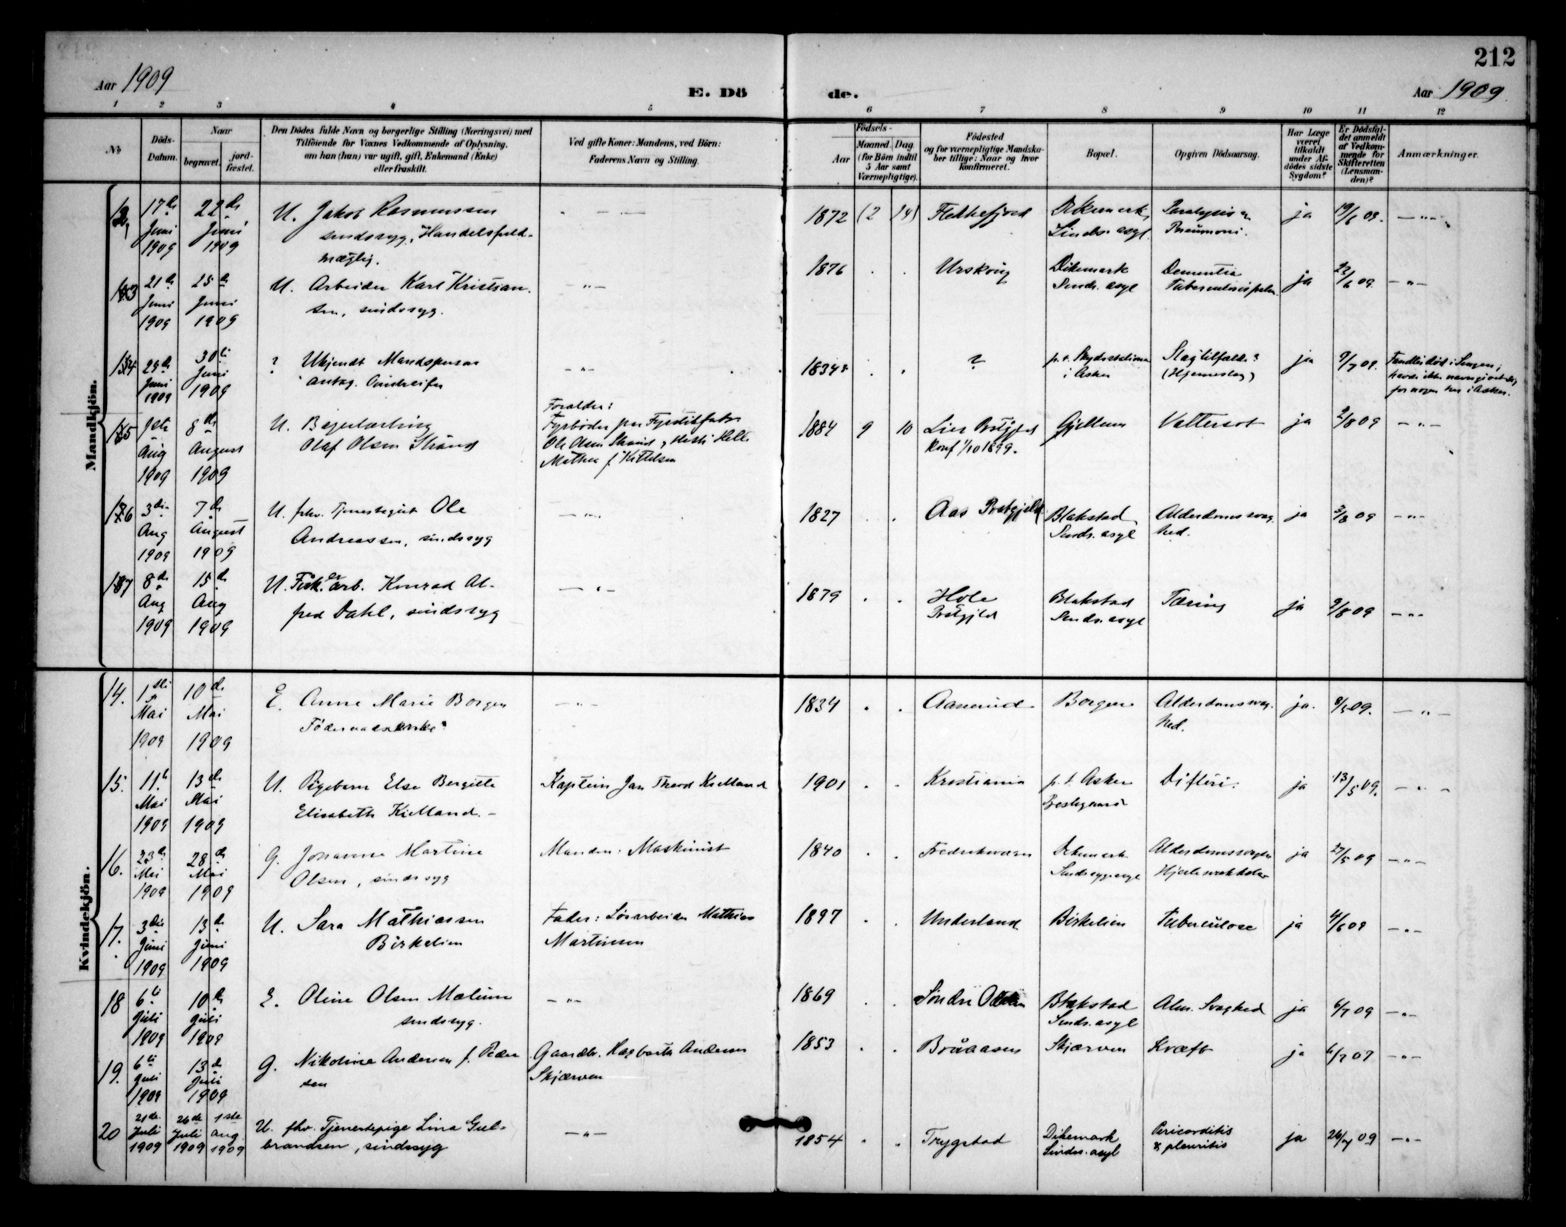 212
Aar 1909
E. Dö
de.
Aar 1909.
1 2 3 4 5 6 7 8 9 10 11 12
No
Döds-
Datum.
Naar
begravet.
jord-
fæstet.
Den Dödes fulde Navn og borgerlige Stilling (Næringsvei) med
Tilföiende for Voxnes Vedkommende af Oplysning,
om han (hun) var ugift, gift, Enkemand (Enke)
eller fraskilt.
Ved gifte Koner: Mandens, ved Börn:
Faderens Navn og Stilling.
Födsels-
Aar
Maaned. Dag
(for Börn indtil
5 Aar samt
Værnepligtige).
Födested
og for værnepligtige Mandska-
ber tillige: Naar og hvor
konfirmeret.
Bopæl.
Opgiven Dödsaarsag.
Har Læge
været
tilkaldt
under Af-
dödes sidste
Sygdom?
Er Dödsfal-
det anmeldt
af Vedkom-
mende for
Skifteretten
(Lensman-
den)?
Anmærkninger.
Mandkjön.
17de Juni 1909
22de Juni 1909
U. Jakob Rasmussen
sindssyg, Handelsfuld-
mægtig.
1872 (2 14) Flekkefjord
Dikemark
Sinds. asyl.
Paralysis
Pneumoni.
ja
13
21de Juni 1909
25de Juni 1909
U. Arbeider Karl Kristian-
sen, sindssyg.
1876 Urskoug
Dikemark
Sinds. asyl
Dementia
ja 22/6 09.
14
Juni 1909
30te Juni 1909
? Ukjendt Mandsperson
antag.
1834? ?
i Asker
Slagtilfælde?
(Hjerneslag)
ja
15
Aug 1909
8de August 1909
U. Bagerlærling
Olaf Olsen Strand
Forældre:
Ole Olsen Strand
1884 9 10 Lier Prstgjeld
Konf 1/10 1899.
Gjellum
ja 2/8 09
16
3die Aug 1909
7de August 1909
U. fhv. Tjenestegut Ole
Andreassen, sindssyg
1827 Aas Prstgjeld
Blakstad
Sinds. asyl
Alderdomssvag-
hed.
ja 3/8 09
17
8de Aug 1909
15de Aug 1909
U. arb. Konrad Al-
fred Dahl, sindssyg
1879 Hole
Prstgjld
Blakstad
Sinds. asyl
Tæring
ja 9/8 09
Kvindekjön.
14.
1ste Mai 1909
10de Mai 1909
E. Anne Marie Borgen
Föderaadsenke
1834 Aanerud
Borgen
Alderdomssvag-
hed.
ja.
15.
11te Mai 1909
13de Mai 1909
U. Pigebarn Else Bergitte
Elisabeth Kielland.
Kaptein Jan Theod Kielland
1901 Kristiania
p. t. Asker
Prestegaard
Difteri.
ja 13/5 09.
16.
23de Mai 1909
28de Mai 1909
G. Johanne Martine
Olsen, sindssyg
Manden: Maskinist
1840 Frederiksværn
Dikemark
Sindssygeasyl
ja
17.
3die Juni 1909
13de Juni 1909
U. Sara Mathiassen
Birkelien
Fader: Mathias
Martinsen
1897 Underland
Birkelien
Tuberculose
ja 4/6 09
18
6te Juli 1909
10de Juli 1909
E. Oline Olsen Mælum
sindssyg.
1869 Söndre Odalen
Blakstad
Sinds. asyl
Alm. Svaghed
ja 6/7 09
19.
6te Juli 1909
13de Juli 1909
G. Nikoline Andersen f. Peder-
sen
Gaardbr. Hagbarth Andersen
Skjærven
1853
Skjærven
Kræft
ja 6/7 09
20
21de Juli 1909
26de Juli 1909
1ste aug 1909
U. fhv. Tjenestepige Lina Gul-
brandsen, sindssyg
1854 Trygstad
Dikemark
Sindss. asyl
Pericarditis
& pleuritis
ja 26/7 09